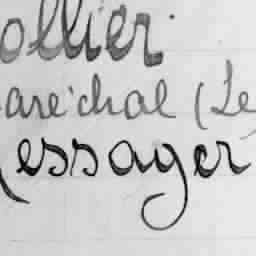 ollier
aréchal (Le
essager